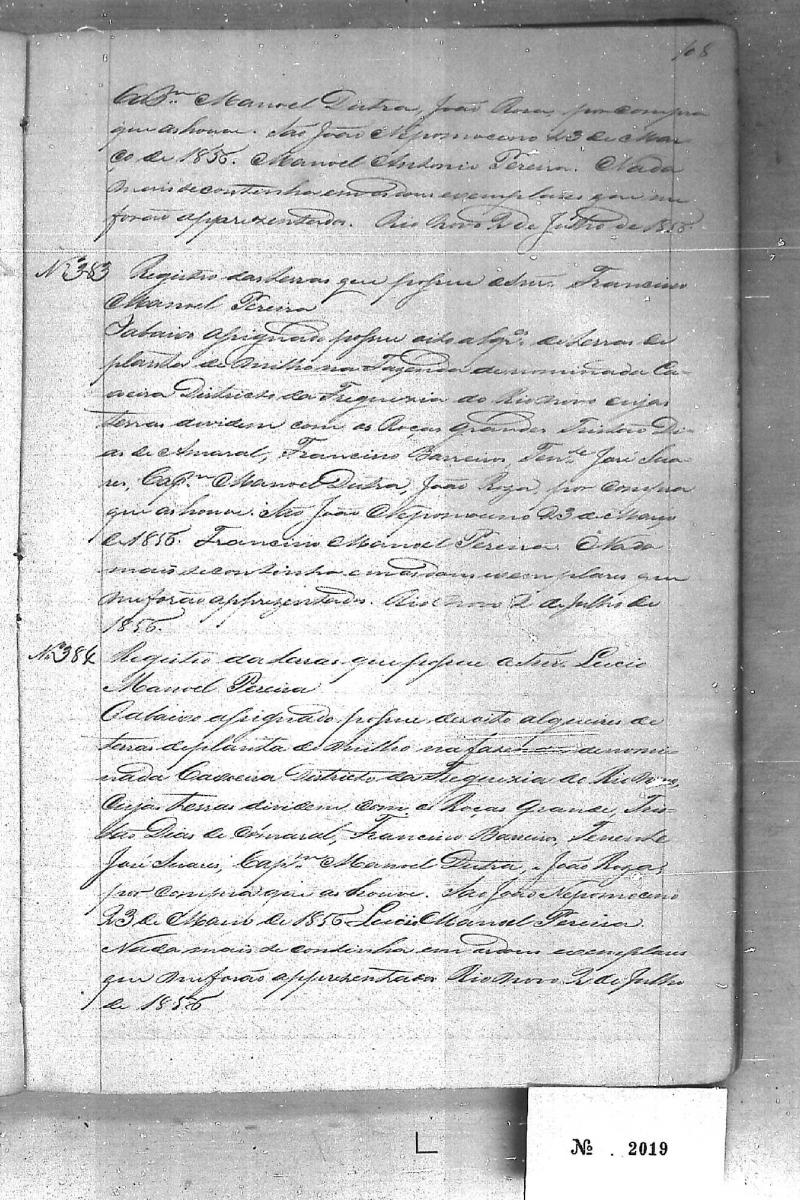 168
Capm Manoel Dutra, João Rosa, por compra
que as houve. São João Nepomoceno 23 de Mar
ço de 1856. Manoel Antonio Pereira. Nada
mais se continha em os dous exemplares que me
forão appresentados. Rio Novo 2 de Julho de 1856
No 383 Registro das terras que possue o Snr. Francisco
Manoel Pereira
O abaixo assignado possue oito alqrs. de terras de
planta de milho na Fazenda denominada Ca-
xoeira Districto da Freguezia do Rio novo cujas
terras dividem com os Roças grandes Tristão Di-
as de Amaral, Francisco Barreiros, Tene José Sua-
res, Capm Manoel Dutra, João Roza, por compra
que as houve. São João Nepomoceno 23 de Março
de 1856. Francisco Manoel Pereira. Nada
mais se continha em os dous exemplares que
me forão appresentados. Rio novo 2 de Julho de
1856.
No 384 Registro das terras que possue o Snr. Lucio
Manoel Pereira
O abaixo assignado possue desoito alqueires de
terras de planta de milho na fazenda denomi-
nada Caxoeira Districto da Freguezia do Rio Novo,
cujas terras dividem com os Roças Grande, Tris-
tão Dias de Amaral, Francisco Barreiro, Tenente
José Suares, Capm Manoel Dutra, e João Roza,
por compra que as houve. São João Nepomoceno
23 de Março de 1856 Lucio Manoel Pereira.
Nada mais se continha em os dous exemplares
que me forão appresentados Rio novo 2 de Julho
de 1856
No . 2019